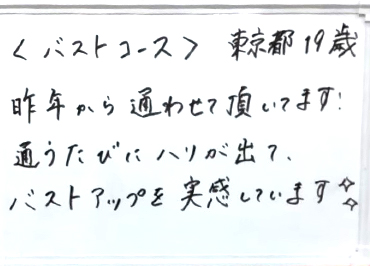 ＜バストコース＞ 東京都19歳
昨年から通わせて頂いてます!
通うたびにハリが出て、
バストアップを実感しています✧✧